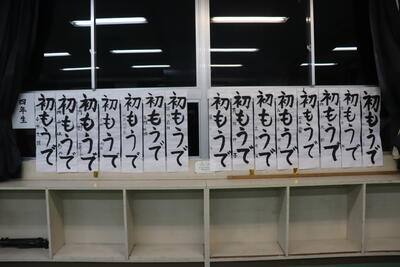 四年生
初もうで
初もうで
初もうで
初もうで
初もうで
初もうで
初もうで
初もうで
初もうで
初もうで
初もうで
初もうで
初もうで
初もうで
初もうで